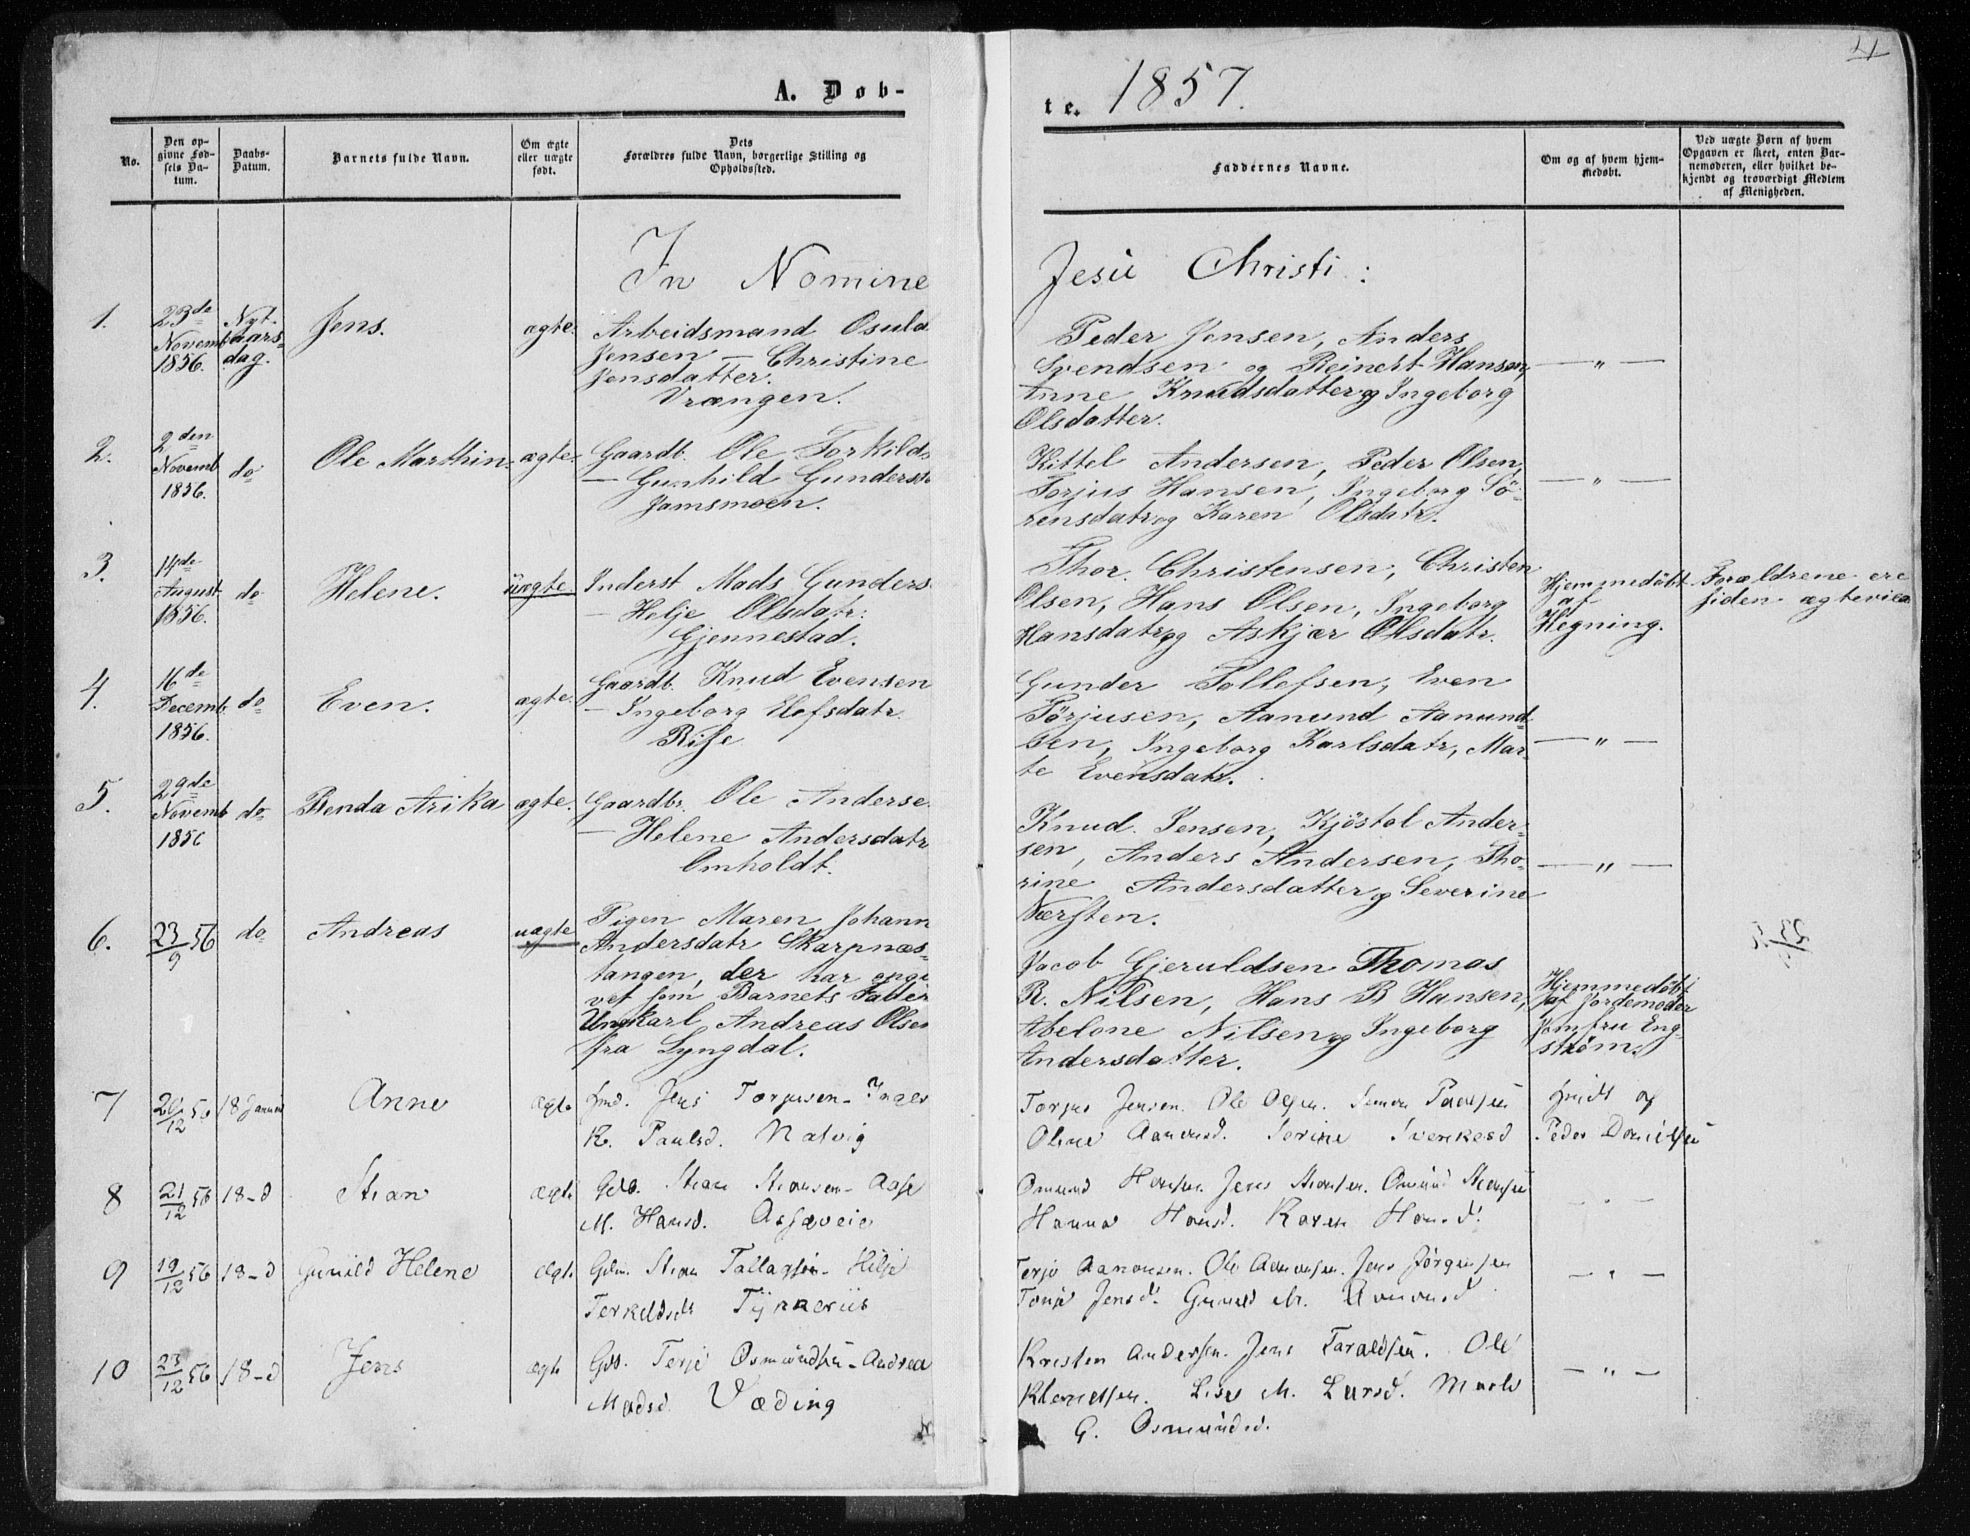 4
A. Døb-
te. 1857.
No.
Den op-
givne Fød-
sels Da-
tum.
Daabs-
Datum.
Barnets fulde Navn.
Om ægte
eller uægte
født.
Dets
Forældres fulde Navn, borgerlige Stilling og
Opholdssted.
Faddernes Navne.
Om og af hvem hjem-
medøbt.
Ved uægte Børn af hvem
Opgaven er skeet, enten Bar-
nemoderen, eller hvilket be-
kjendt og troværdigt Medlem
af Menigheden.
In Nomine
Jesu Christi:
1.
23de
Novemb
1856.
Nyt-
aars-
dag.
Jens.
ægte.
Arbeidsmand Osuld
Jensen — Christine
Jensdatter.
Vrængen.
Peder Jensen, Anders
Svendsen og Reinert Hansen,
Anne Knudsdatter og Ingeborg
Olsdatter.
— " —
2.
2den
Novemb
1856.
do
Ole Marthin.
ægte.
Gaardb. Ole Torkilds
— Gunhild Gundersd
Jamsmoen.
Kittel Andersen, Peder Olsen,
Torjus Hansen, Ingeborg Sö-
rensdatr og Karen Olsdatr.
— " —
3.
14de
August
1856.
do
Helene.
uægte.
Inderst Mads Gunders
— Helje Olsdatr:
Gjennestad.
Thor Christensen, Christen
Olsen, Hans Olsen, Ingeborg
Hansdatr og Askjær Olsdatr.
Hjemmedöbt
af
Hegning.
Forældrene ere
siden ægteviet
4.
16de
Decemb.
1856.
do
Even.
ægte.
Gaardb. Knud Evensen
— Ingeborg Elefsdatr.
Rise
Gunder Tollefsen, Even
Törjusen, Aanund Aanund-
sen, Ingeborg Karlsdatr, Mar-
te Evensdatr.
— " —
5.
29de
Novemb
1856
do
Benda Arika
ægte.
Gaardbr. Ole Anderse
— Helene Andersdatr
Omholdt.
Knud Jensen, Kjöstol Ander-
sen, Anders Andersen, Tho-
rine Andersdatter og Severine
Nærsten.
— " —
6.
23/9 56
do
Andreas
uægte
Pigen Maren Johann
Andersdatr Skarpnæs-
tangen, der har opgi
vet som Barnets Fader
Ungkarl Andreas Olsen
fra Lyngdal.
Jacob Gjeruldsen Thomas
R. Nilsen, Hans B Hansen,
Abelone Nilsen og Ingeborg
Andersdatter.
Hjemmedøbt
af Jordemoder
Jomfru Eng-
ström.
7
26/12 56
18 Januar
Anne
ægte
Jens Torjusen - Inger
K. Paulsd. Natvig
Torjus Jensen. Ole Olsen.
Oline Aanensd. Serine
af
Peder Danielsen
8
21/12 56
18-d
Stian
ægte
Gdb. Stian Stiansen - Aase
M. Hansd.
Osmund Hansen. Jens Stiansen. Osmund Stiansen
Hanna Hansd. Karen Hansd.
- " -
9
19/12 56
18-d
Gunild Helene
ægte
Stian Tallagsen - Hilje
Terkeldsdt
Terje Aanonsen. Ole Aanonsen. Jens Jörgensen
Tonje Jensd. Gunild M. Aanonsd
— " —
10
23/12 56
18-d
Jens
ægte
Gdb. Terje Osmundsen - Andrea
Madsd. Væding
Kristen Andersen. Jens Taraldsen. Ole
Klemetsen. Lise M. Larsd. Marte
G. Osmundsd.
— " —